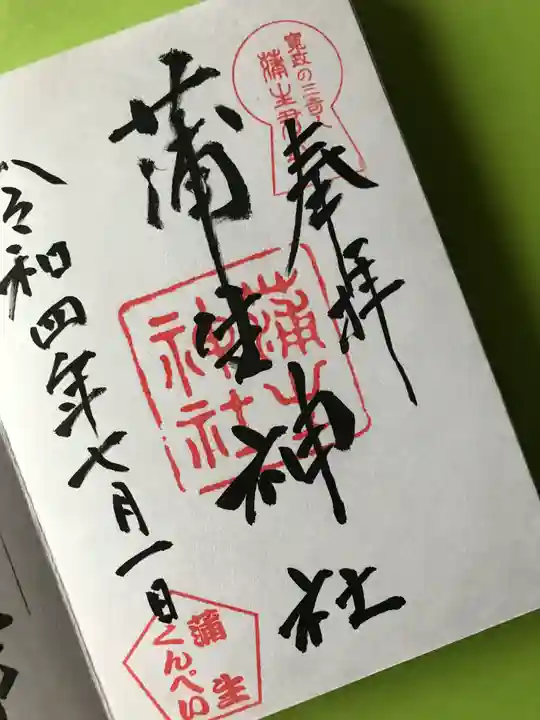 奉拝
寛政の三奇人
蒲生君平
蒲生神社
蒲生
神社
令和四年七月一日
蒲生
くんぺい